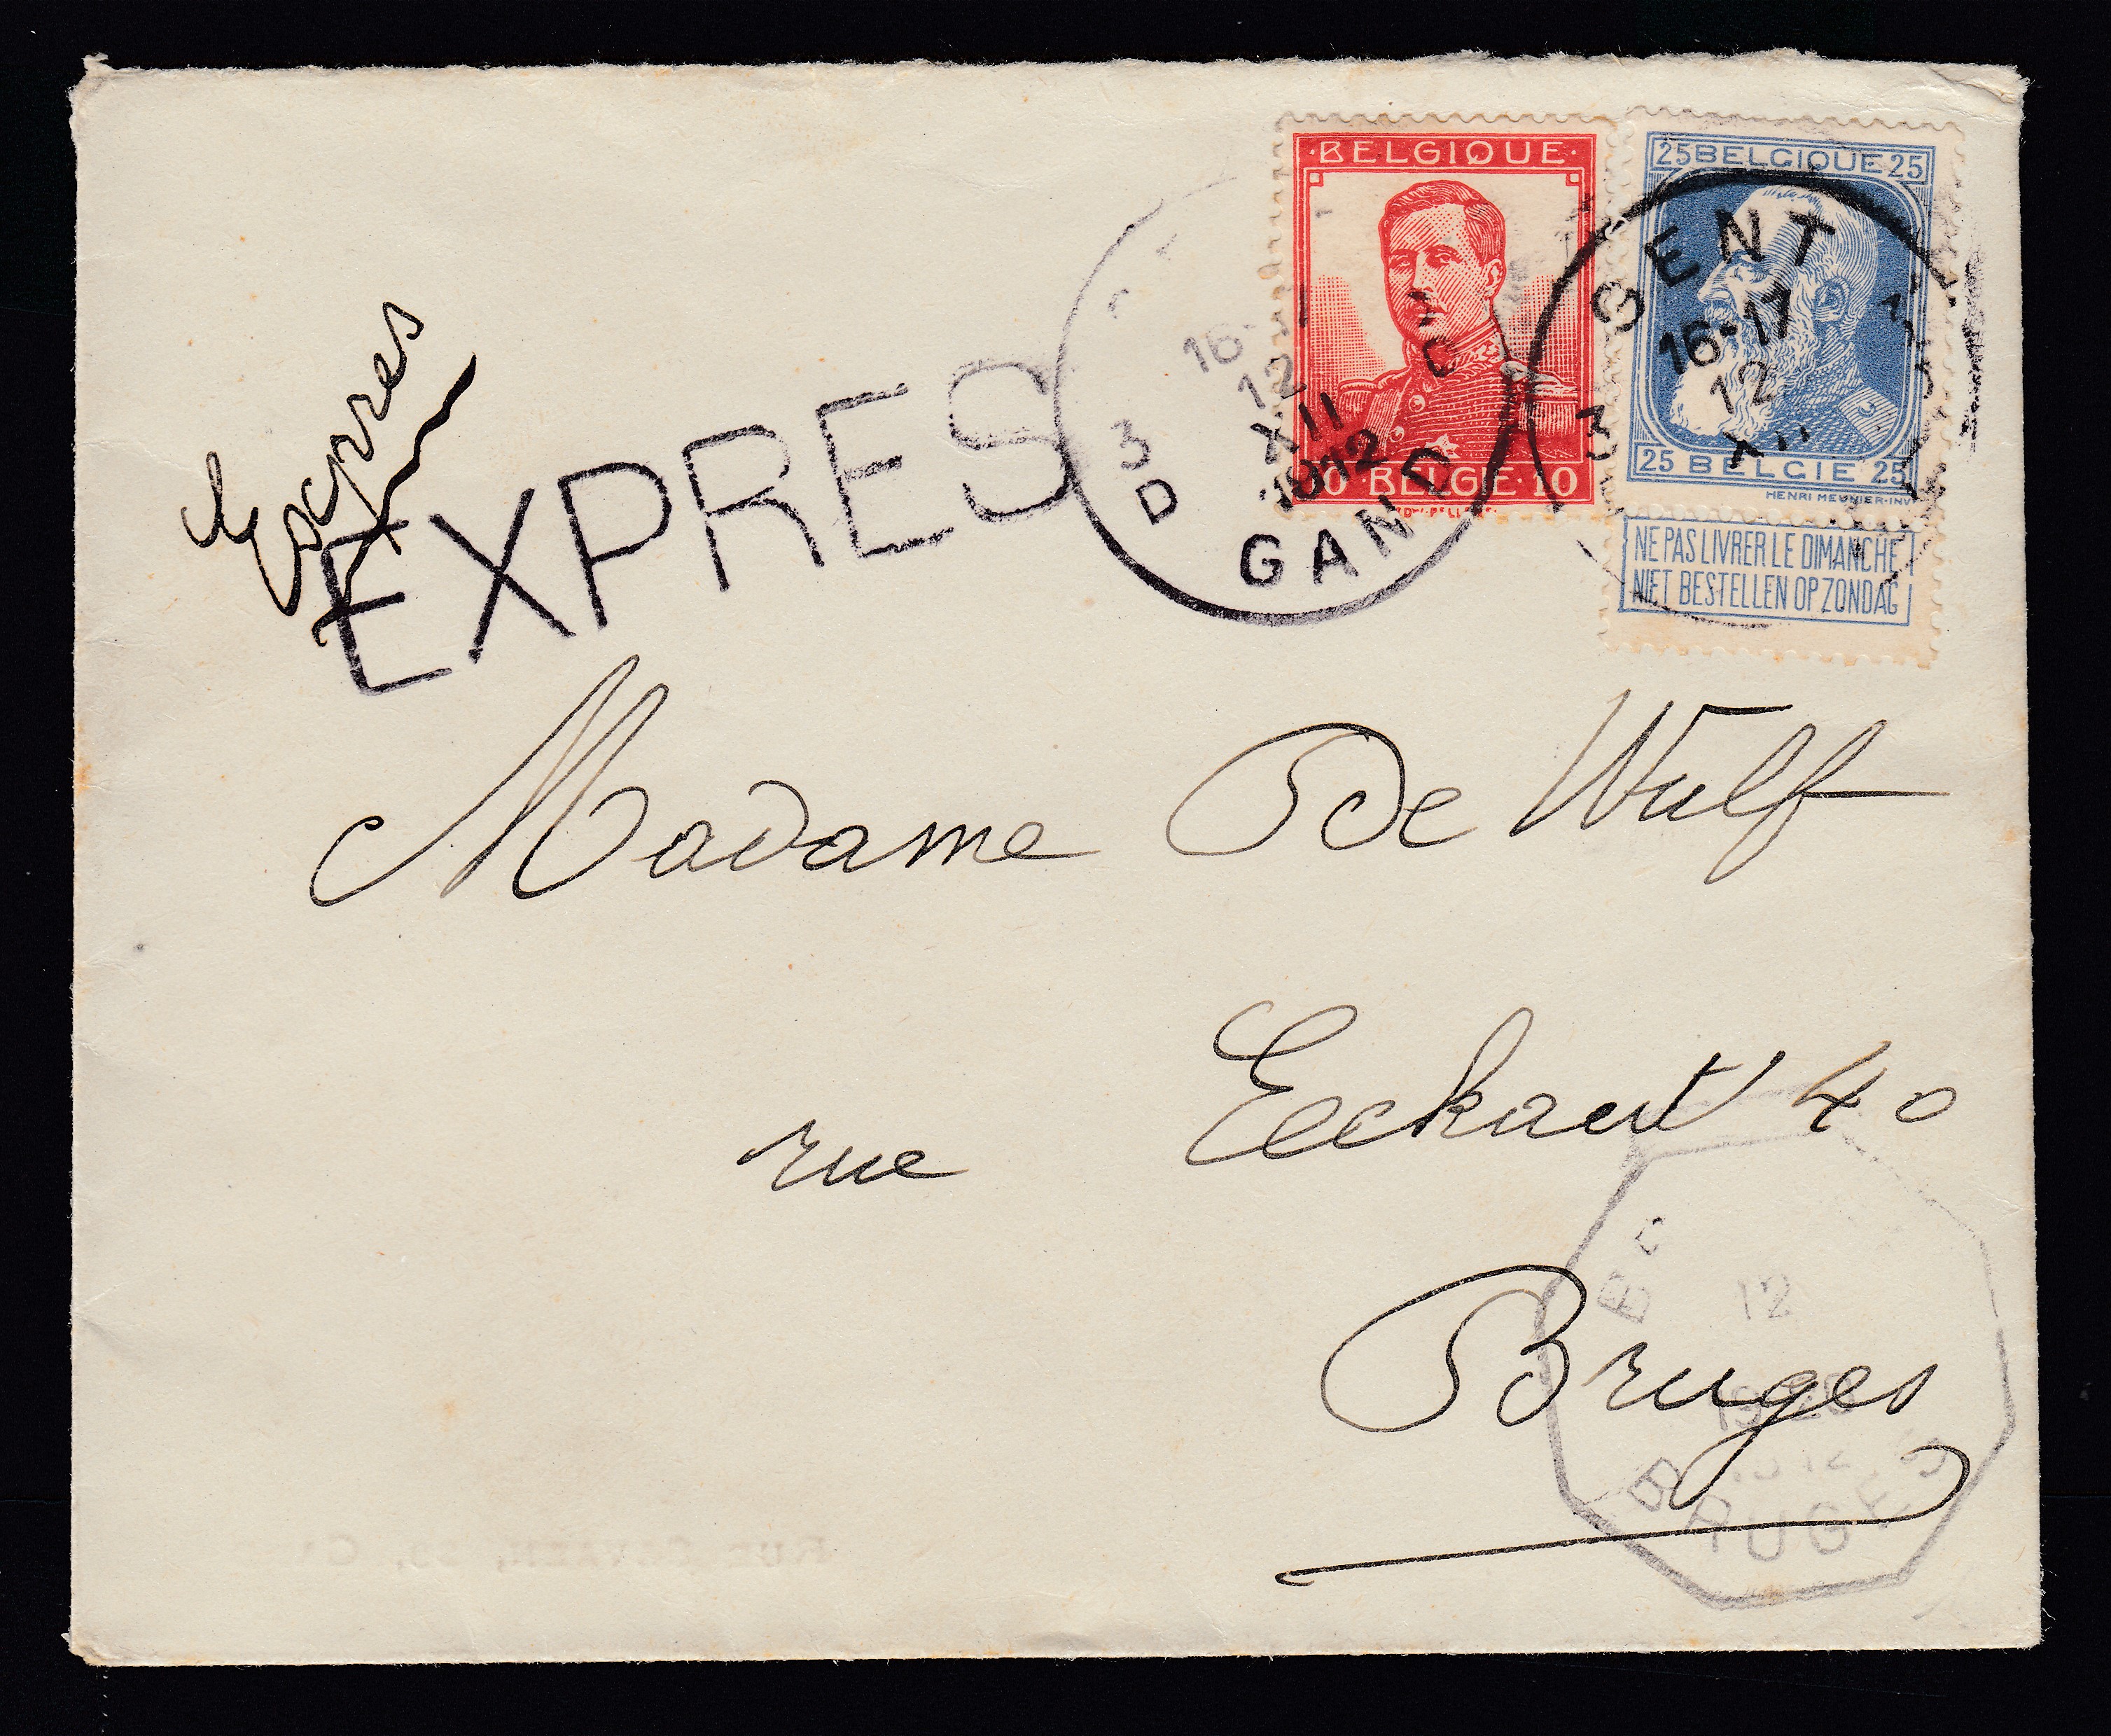 ·BELGIQUE·
10 BELGIE·10
25 BELGIQUE 25
25 BELGIE 25
HENRI MEUNIER·INV
NE PAS LIVRER LE DIMANCHE
NIET BESTELLEN OP ZONDAG
GENT
16-17
12
XII
3
16-
12
XII
1912
3
D
GAND
Expres
EXPRES
Madame De Wulf
rue Eeckaut 40
Bruges
12
BRUGES